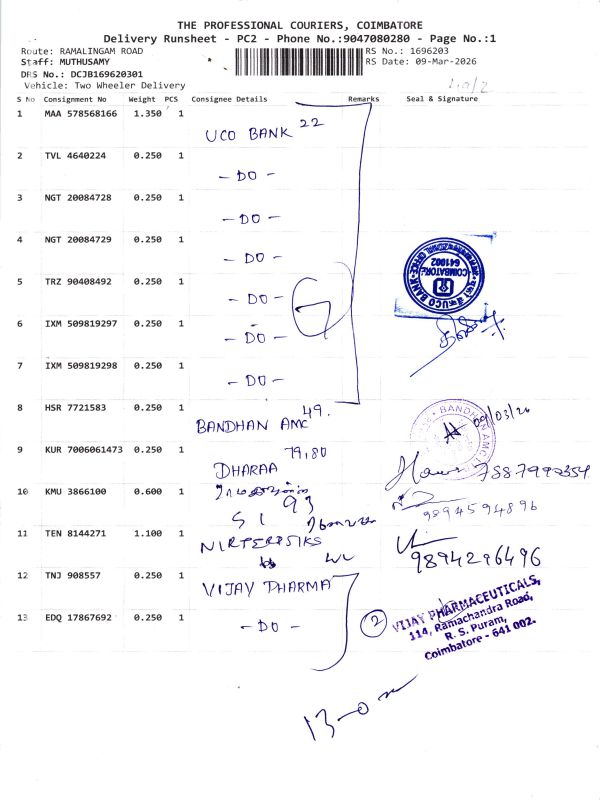 THE PROFESSIONAL COURIERS, COIMBATORE
Delivery Runsheet - PC2 - Phone No.:9047080280 - Page No.:1
Route: RAMALINGAM ROAD RS No.: 1696203
Staff: MUTHUSAMY RS Date: 09-Mar-2026
DRS No.: DCJB169620301
Vehicle: Two Wheeler Delivery
S No Consignment No Weight PCS Consignee Details Remarks Seal & Signature
1 MAA 578568166 1.350 1 UCO BANK 22
2 TVL 4640224 0.250 1 - DO -
3 NGT 20084728 0.250 1 - DO -
4 NGT 20084729 0.250 1 - DO -
5 TRZ 90408492 0.250 1 - DO - 7
6 IXM 509819297 0.250 1 - DO -
7 IXM 509819298 0.250 1 - DO -
UCO BANK
COIMBATORE
641002
8 HSR 7721583 0.250 1 BANDHAN AMC 49.
BANDHAN AMC
09/03/26
9 KUR 7006061473 0.250 1 DHARAA 79,80
10 KMU 3866100 0.600 1 S 1 93
9894594896
11 TEN 8144271 1.100 1
9894296496
12 TNJ 908557 0.250 1 VIJAY PHARMA
13 EDQ 17867692 0.250 1 - DO - 2
VIJAY PHARMACEUTICALS,
114, Ramachandra Road,
R. S. Puram,
Coimbatore - 641 002.